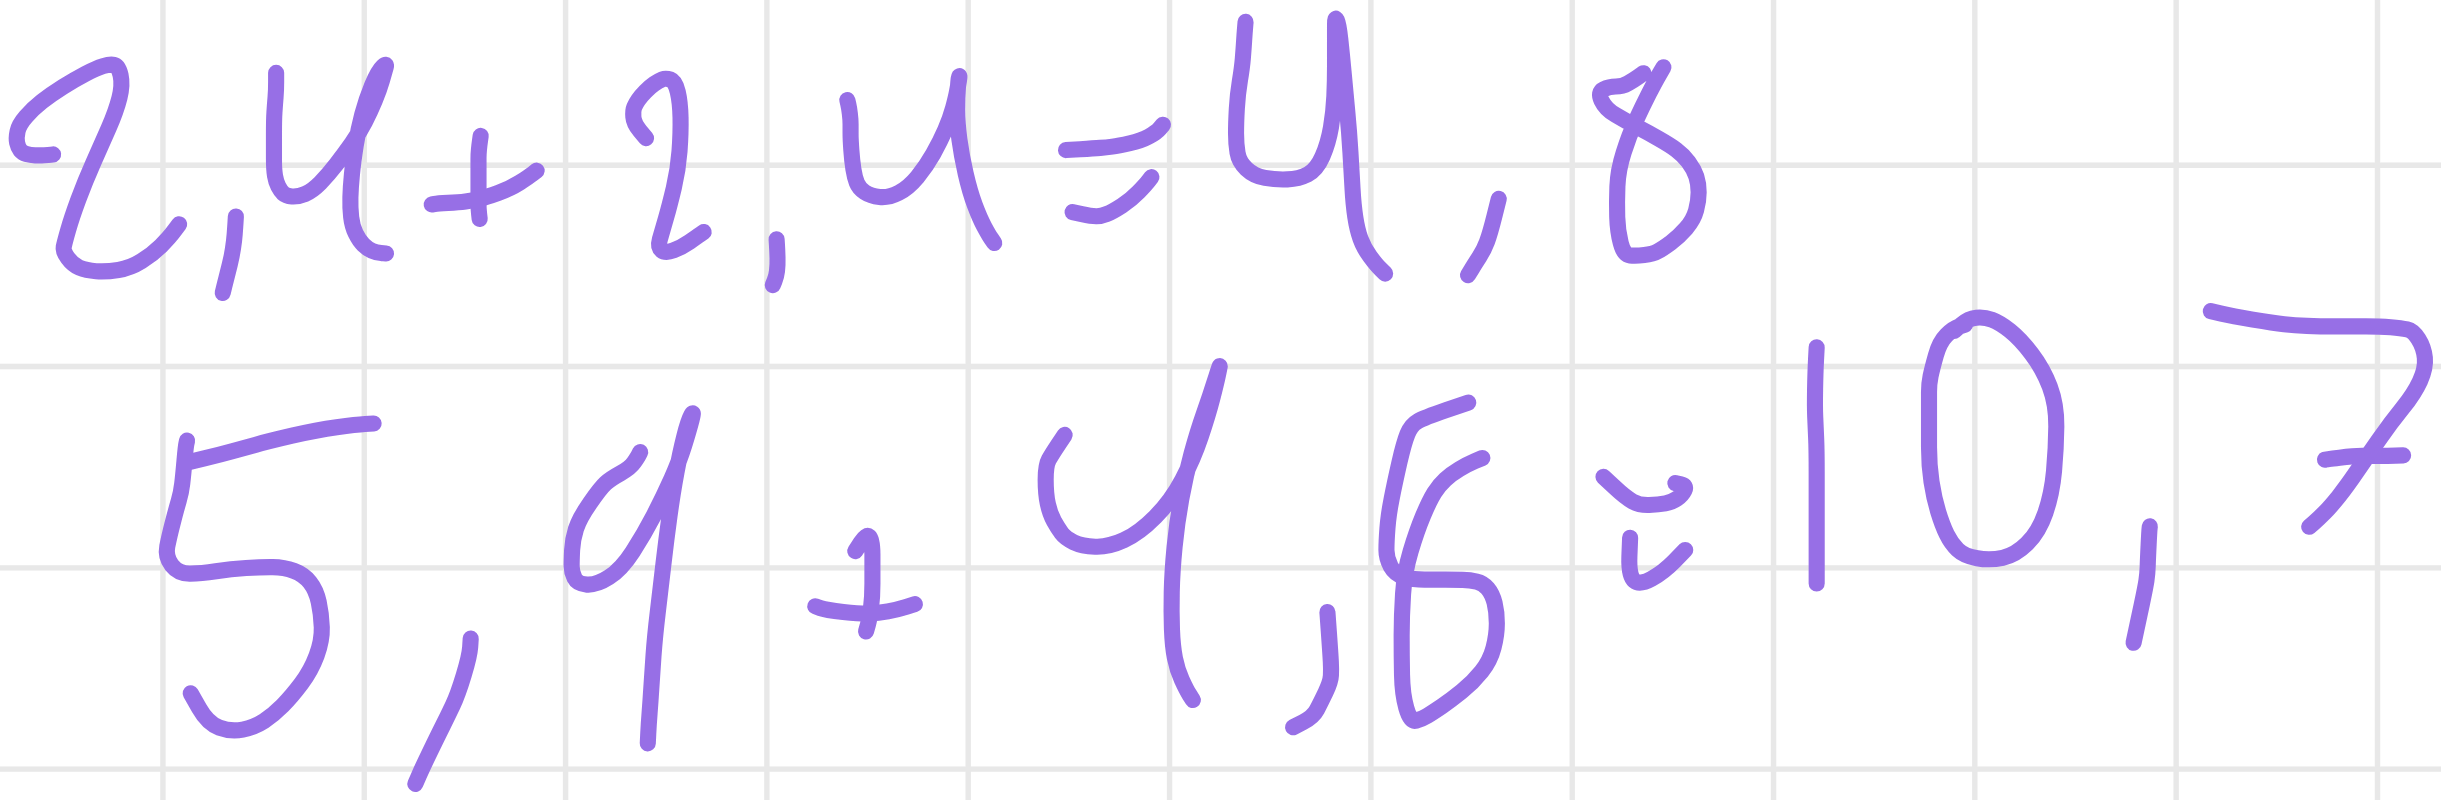 2,4+2,4=4,8
5,9+4,8=10,7